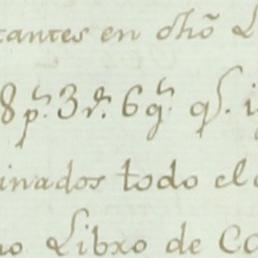 tantes en dhõ L
8 ps. 3 rs. 6 gs. qs. i
inados todo el c
no Libro de Co